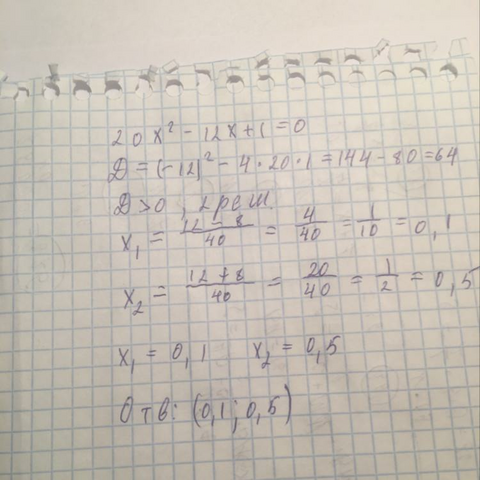 20x² - 12x + 1 = 0
D = (-12)² - 4 · 20 · 1 = 144 - 80 = 64
D > 0, 2 реш.
x₁ = (12 - 8)/40 = 4/40 = 1/10 = 0,1
x₂ = (12 + 8)/40 = 20/40 = 1/2 = 0,5
x₁ = 0,1 x₂ = 0,5
Отв: (0,1; 0,5)